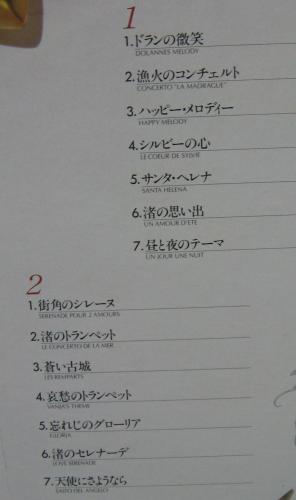 1
1.ドランの微笑
DOLANNES MELODY
2.漁火のコンチェルト
CONCERTO "LA MADRAGUE"
3.ハッピー・メロディー
HAPPY MELODY
4.シルビーの心
LE COEUR DE SYLVIE
5.サンタ・ヘレナ
SANTA HELENA
6.渚の思い出
UN AMOUR D'ETE
7.昼と夜のテーマ
UN JOUR UNE NUIT
2
1.街角のシレーヌ
SERENADE POUR 2 AMOURS
2.渚のトランペット
LE CONCERTO DE LA MER
3.蒼い古城
LES REMPARTS
4.哀愁のトランペット
VANIA'S THEME
5.忘れじのグローリア
GLORIA
6.渚のセレナーデ
LOVE SERENADE
7.天使にさようなら
SALTO DEL ANGELO